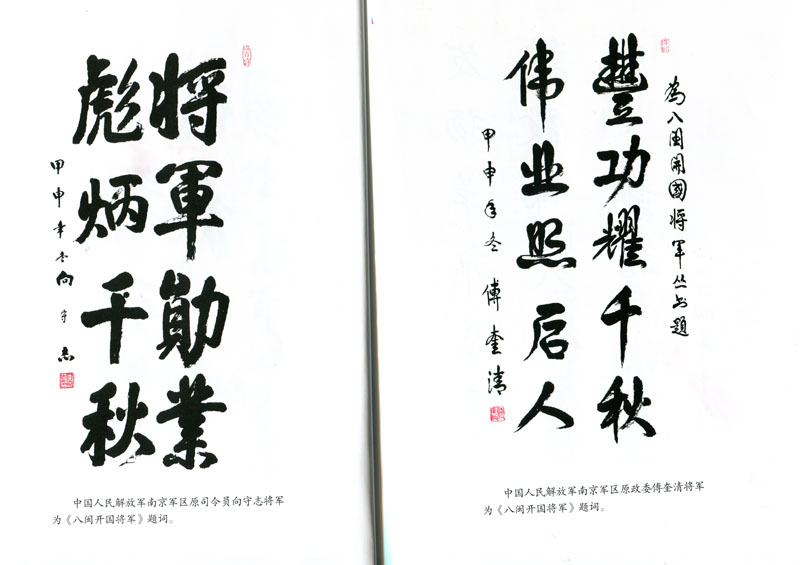 将軍勛業
彪炳千秋
甲申年冬向守志
中国人民解放军南京军区原司令员向守志将军
为《八闽开国将军》题词。
為八闽開國将军丛书題
豐功耀千秋
伟业照后人
甲申年冬 傅奎清
中国人民解放军南京军区原政委傅奎清将军
为《八闽开国将军》题词。